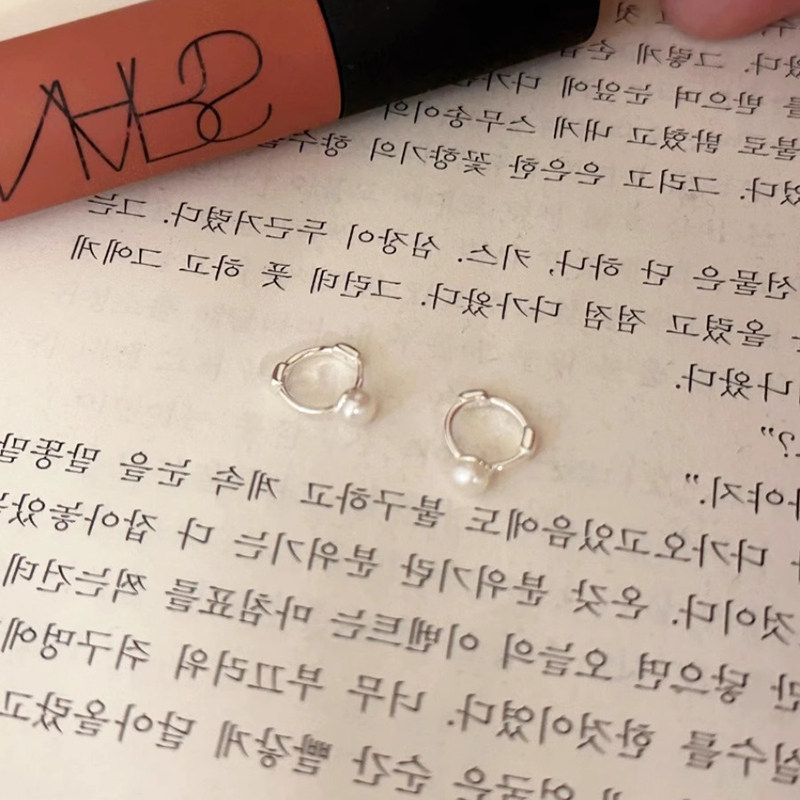 NARS
왔다. 그렇게 손
를 받으며 눈앞에 다가
불로 밝혔고 내게 스무송이의
었다. 그리고 은은한 꽃향기의 향수를
선물은 단 하나, 키스. 심장이 두근거렸다. 그는
올렸고 점점 다가왔다. 그런데 풋 하고 그에게
나왔다.
?”
야지.”
다가오고있음에도 불구하고 계속 눈을 말똥말
것이다. 온갖 분위기란 분위기는 다 잡아놓았
만 닿으면 오늘의 이벤트는 마침표를 찍는건데
실수를 한것이었다. 너무 부끄러워 쥐구멍에
얼굴은 순간 빨갛게 달아올랐고